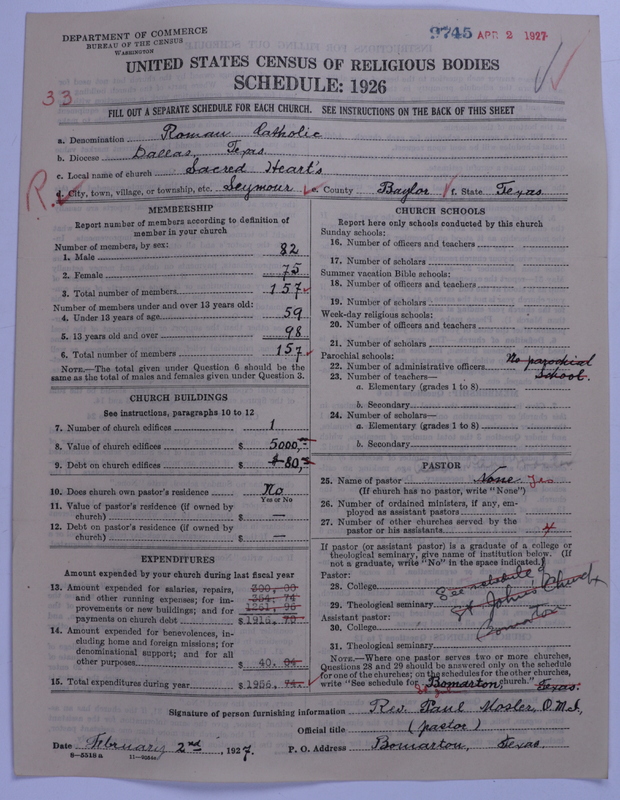 DEPARTMENT OF COMMERCE
BUREAU OF THE CENSUS
WASHINGTON
9745 APR 2 1927
UNITED STATES CENSUS OF RELIGIOUS BODIES
SCHEDULE: 1926
33
FILL OUT A SEPARATE SCHEDULE FOR EACH CHURCH. SEE INSTRUCTIONS ON THE BACK OF THIS SHEET
a. Denomination Roman Catholic
b. Diocese Dallas, Texas
c. Local name of church Sacred Heart's
R.
d. City, town, village, or township, etc. Seymour e. County Baylor f. State Texas
MEMBERSHIP
Report number of members according to definition of
member in your church
Number of members, by sex:
1. Male 82
2. Female 75
3. Total number of members 157
Number of members under and over 13 years old:
4. Under 13 years of age 59
5. 13 years old and over 98
6. Total number of members 157
NOTE.—The total given under Question 6 should be
same as the total of males and females given under Question 3.
CHURCH BUILDINGS
See instructions, paragraphs 10 to 12
7. Number of church edifices 1
8. Value of church edifices $ 5000,
9. Debt on church edifices $ 80,
10. Does church own pastor's residence No
Yes or No
11. Value of pastor's residence (if owned by
church) $ —
12. Debt on pastor's residence (if owned by
church) $ —
EXPENDITURES
Amount expended by your church during last fiscal year
13. Amount expended for salaries, repairs, 300, 00
and other running expenses; for im- 354, 74
provements or new buildings; and for 1261, 96
payments on church debt $ 1916. 70
14. Amount expended for benevolences, in-
cluding home and foreign missions; for
denominational support; and for all
other purposes $ 40. 04
15. Total expenditures during year $ 1956. 74
CHURCH SCHOOLS
Report here only schools conducted by this church
Sunday schools:
16. Number of officers and teachers
17. Number of scholars
Summer vacation Bible schools:
18. Number of officers and teachers
19. Number of scholars
Week-day religious schools:
20. Number of officers and teachers
21. Number of scholars
Parochial schools:
22. Number of administrative officers No parochial
23. Number of teachers— school.
a. Elementary (grades 1 to 8)
b. Secondary
24. Number of scholars—
a. Elementary (grades 1 to 8)
b. Secondary
PASTOR
25. Name of pastor None. Yes
(If church has no pastor, write "None")
26. Number of ordained ministers, if any, em-
ployed as assistant pastors
27. Number of other churches served by the
pastor or his assistants 4
If pastor (or assistant pastor) is a graduate of a college or
theological seminary, give name of institution below. (If
not a graduate, write "No" in the space indicated.)
Pastor:
28. College See
29. Theological seminary St. John's Church
Assistant pastor:
30. College Bomarton
31. Theological seminary
NOTE.—Where one pastor serves two or more churches,
Questions 28 and 29 should be answered only on the schedule
for one of the churches; on the schedules for the other churches,
write "See schedule for Bomarton, church." Texas.
Signature of person furnishing information Rev. Paul Mosler, O.M.I.,
Official title (pastor)
Date February 2nd, 1927. P. O. Address Bomarton, Texas.
8-5518a